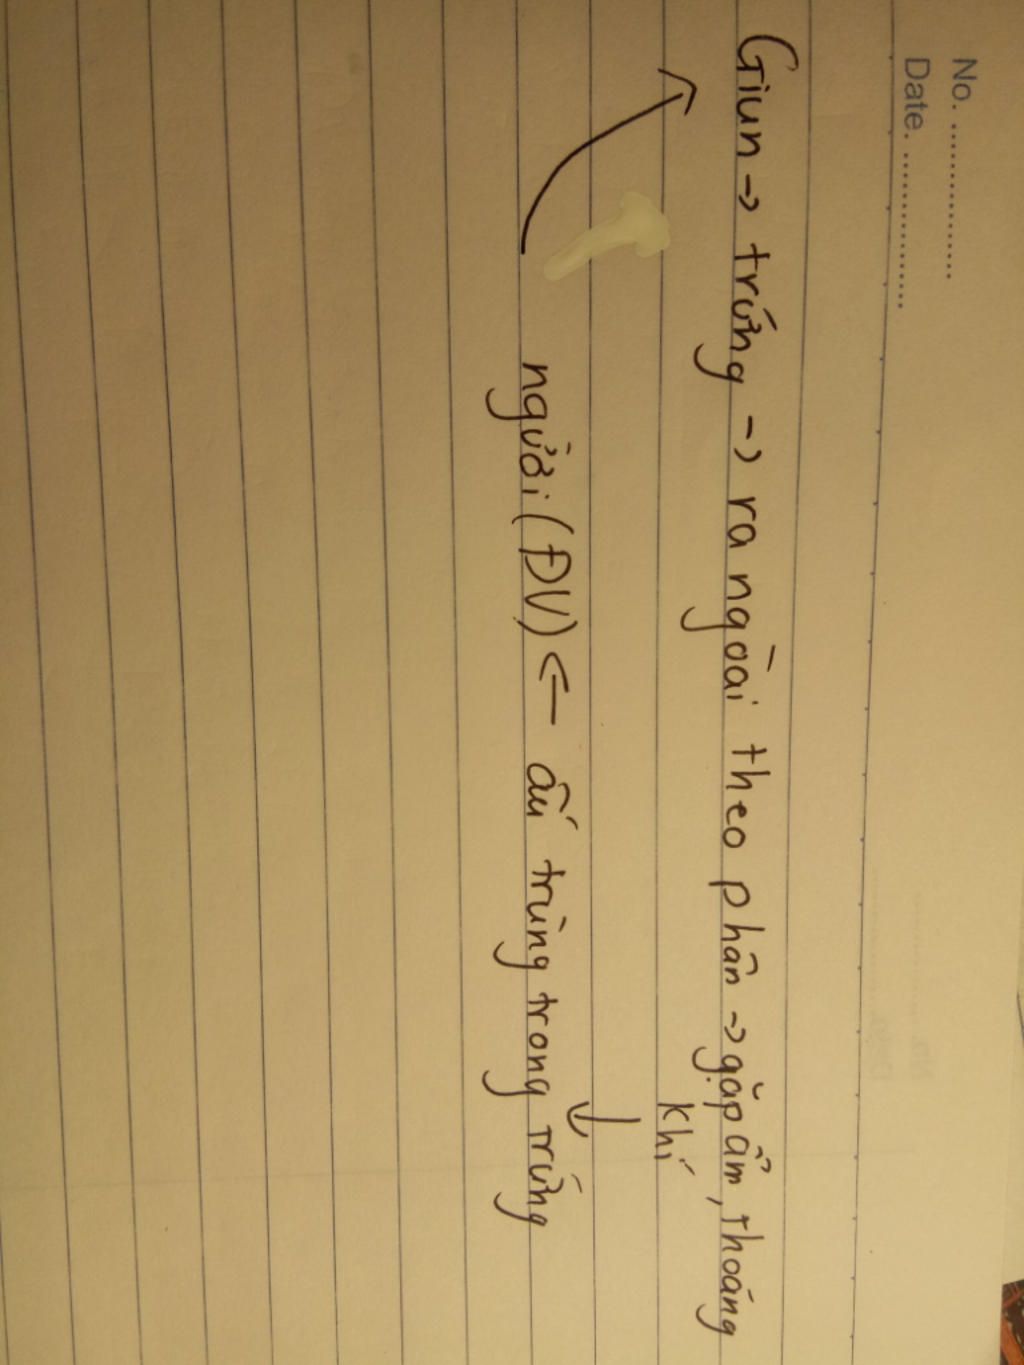 No. ................
Date. ................
Giun → trứng → ra ngoài theo phân → gặp ẩm, thoáng
khí
↓
người (ĐV) ← ấu trùng trong trứng